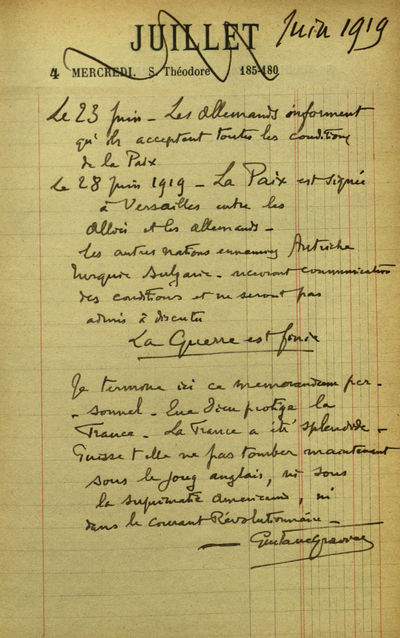 JUILLET Juin 1919
4 MERCREDI. S. Théodore 185-180
Le 23 Juin - Les Allemands informent
qu'ils acceptent toutes les conditions
de la Paix
Le 28 Juin 1919 - La Paix est signée
à Versailles entre les
Alliés et les allemands -
Les autres nations ennemies Autriche
Turquie Bulgarie - recevront communication
des conditions et ne seront pas
admis à discuter
La Guerre est finie
Je termine ici ce memorandum per-
- sonnel - Que Dieu protège la
France - La France a été splendide -
Puisse t elle ne pas tomber maintenant
sous le joug anglais, ni sous
la suprématie américaine, ni
dans le courant Révolutionnaire -
Gustave